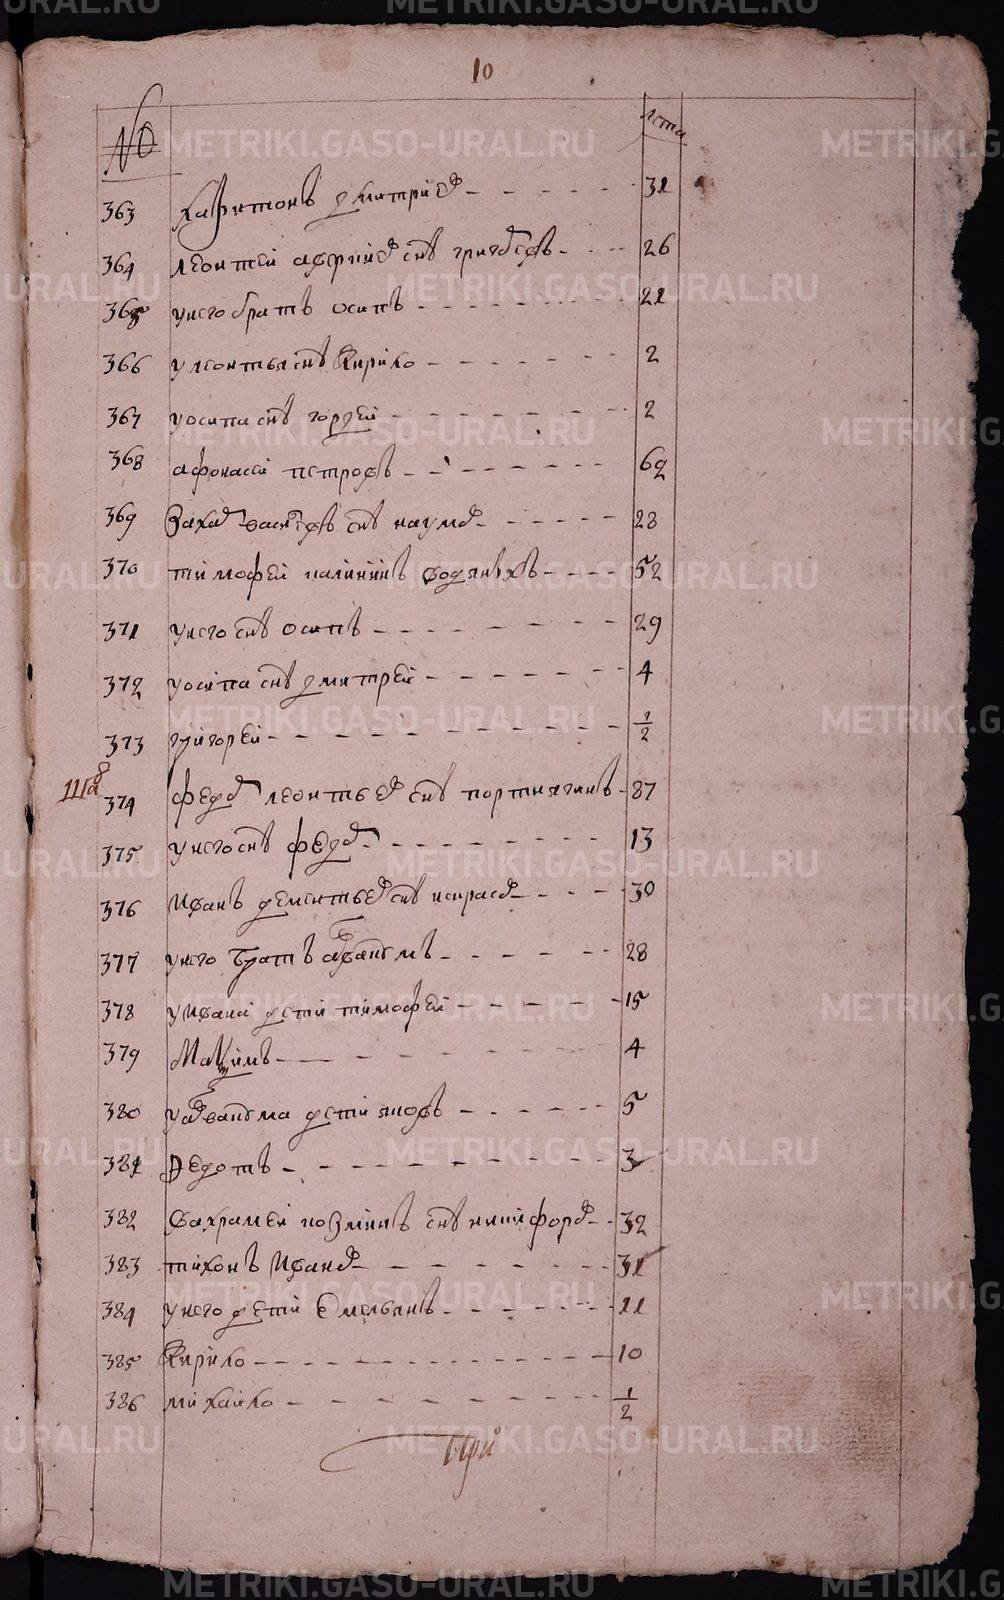 10
№ лета
363 харитонъ дмитриев 31
364 леонтей снъ григорьевъ 26
365 у него братъ осипъ 21
366 у леонтья снъ Кирило 2
367 у осипа снъ гордей 2
368 афонасей петровъ 62
369 Захар васильевъ снъ наумов 23
370 тимофей калининъ 52
371 у него снъ осипъ 29
372 у осипа снъ дмитрей 4
373 григорей 1/2
374 федор леонтьев снъ портнягинъ 87
375 у него снъ федор 13
376 иванъ дементьев снъ некрасов 30
377 у него братъ 28
378 у ивана дети тимофей 15
379 Максимъ 4
380 дети яковъ 5
381 Федотъ 3
382 вахрамей козминъ снъ никифоров 32
383 тихонъ иванов 31
384 у него дети Емельянъ 11
385 Кирило 10
386 михайло 1/2
METRIKI.GASO-URAL.RU